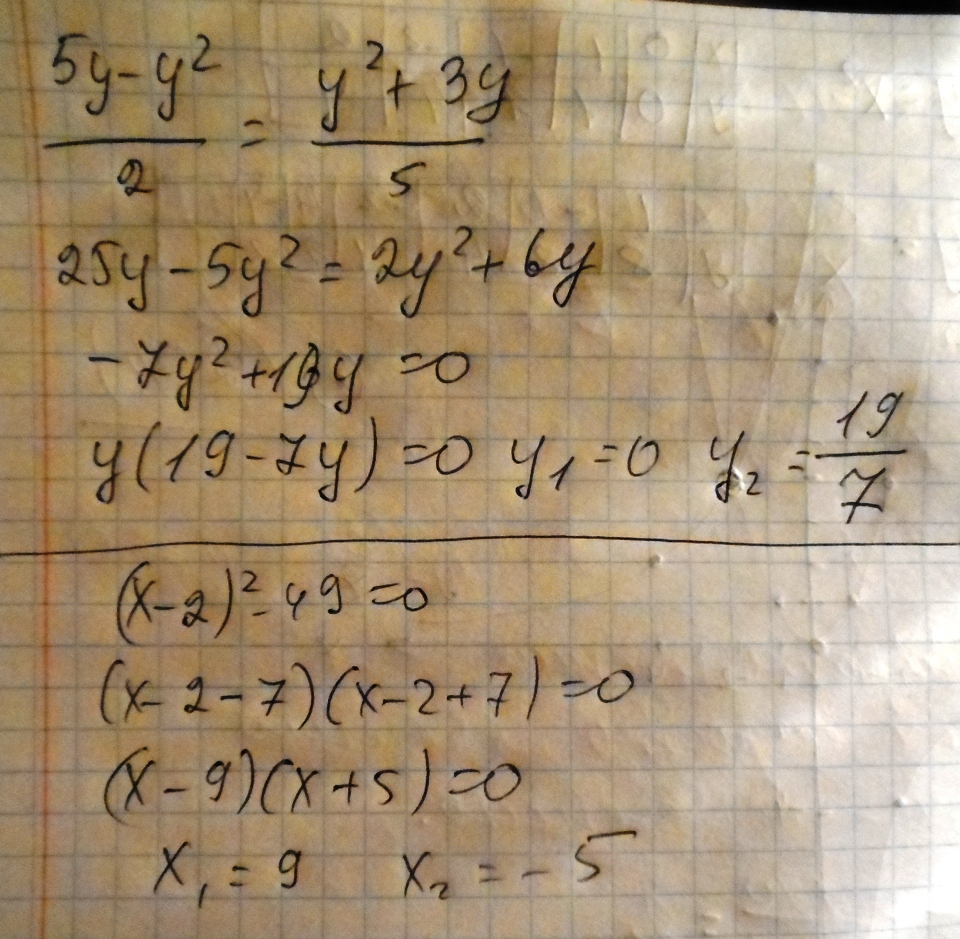 (5y-y²)/2 = (y²+3y)/5
25y-5y²=2y²+6y
-7y²+19y=0
y(19-7y)=0 y₁=0 y₂=19/7
(x-2)²-49=0
(x-2-7)(x-2+7)=0
(x-9)(x+5)=0
x₁=9 x₂=-5